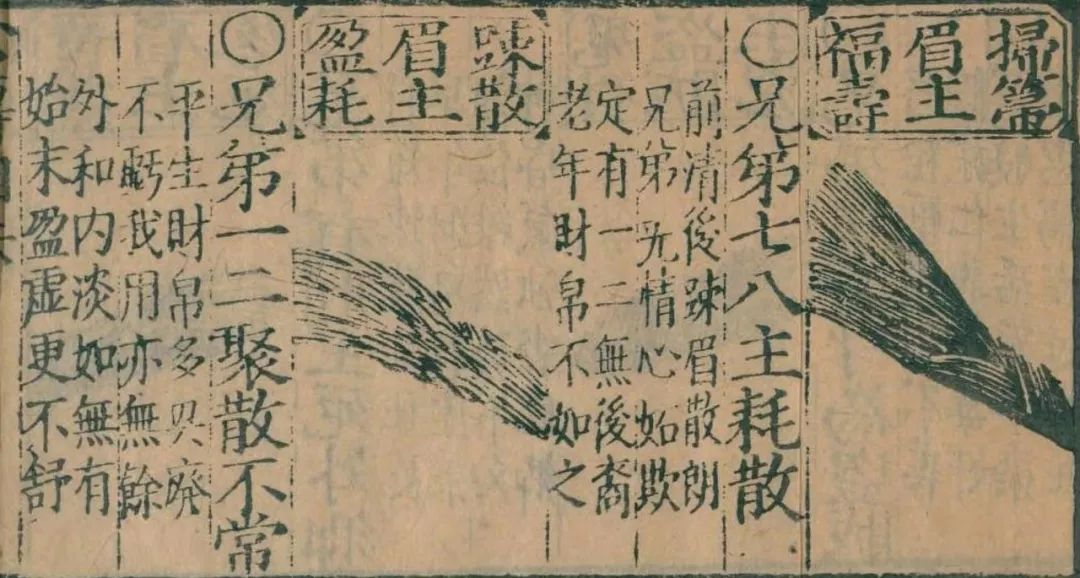 掃箒
眉主
福壽
〇兄第七八主耗散
前清後踈眉散朗
兄第无情心妬欺
定有一二無後裔
老年財帛不如之
踈散
眉主
盈耗
〇兄第一二聚散不常
平生財帛多興廢
不虧我用亦無餘
外和内淡如無有
始末盈虛更不舒